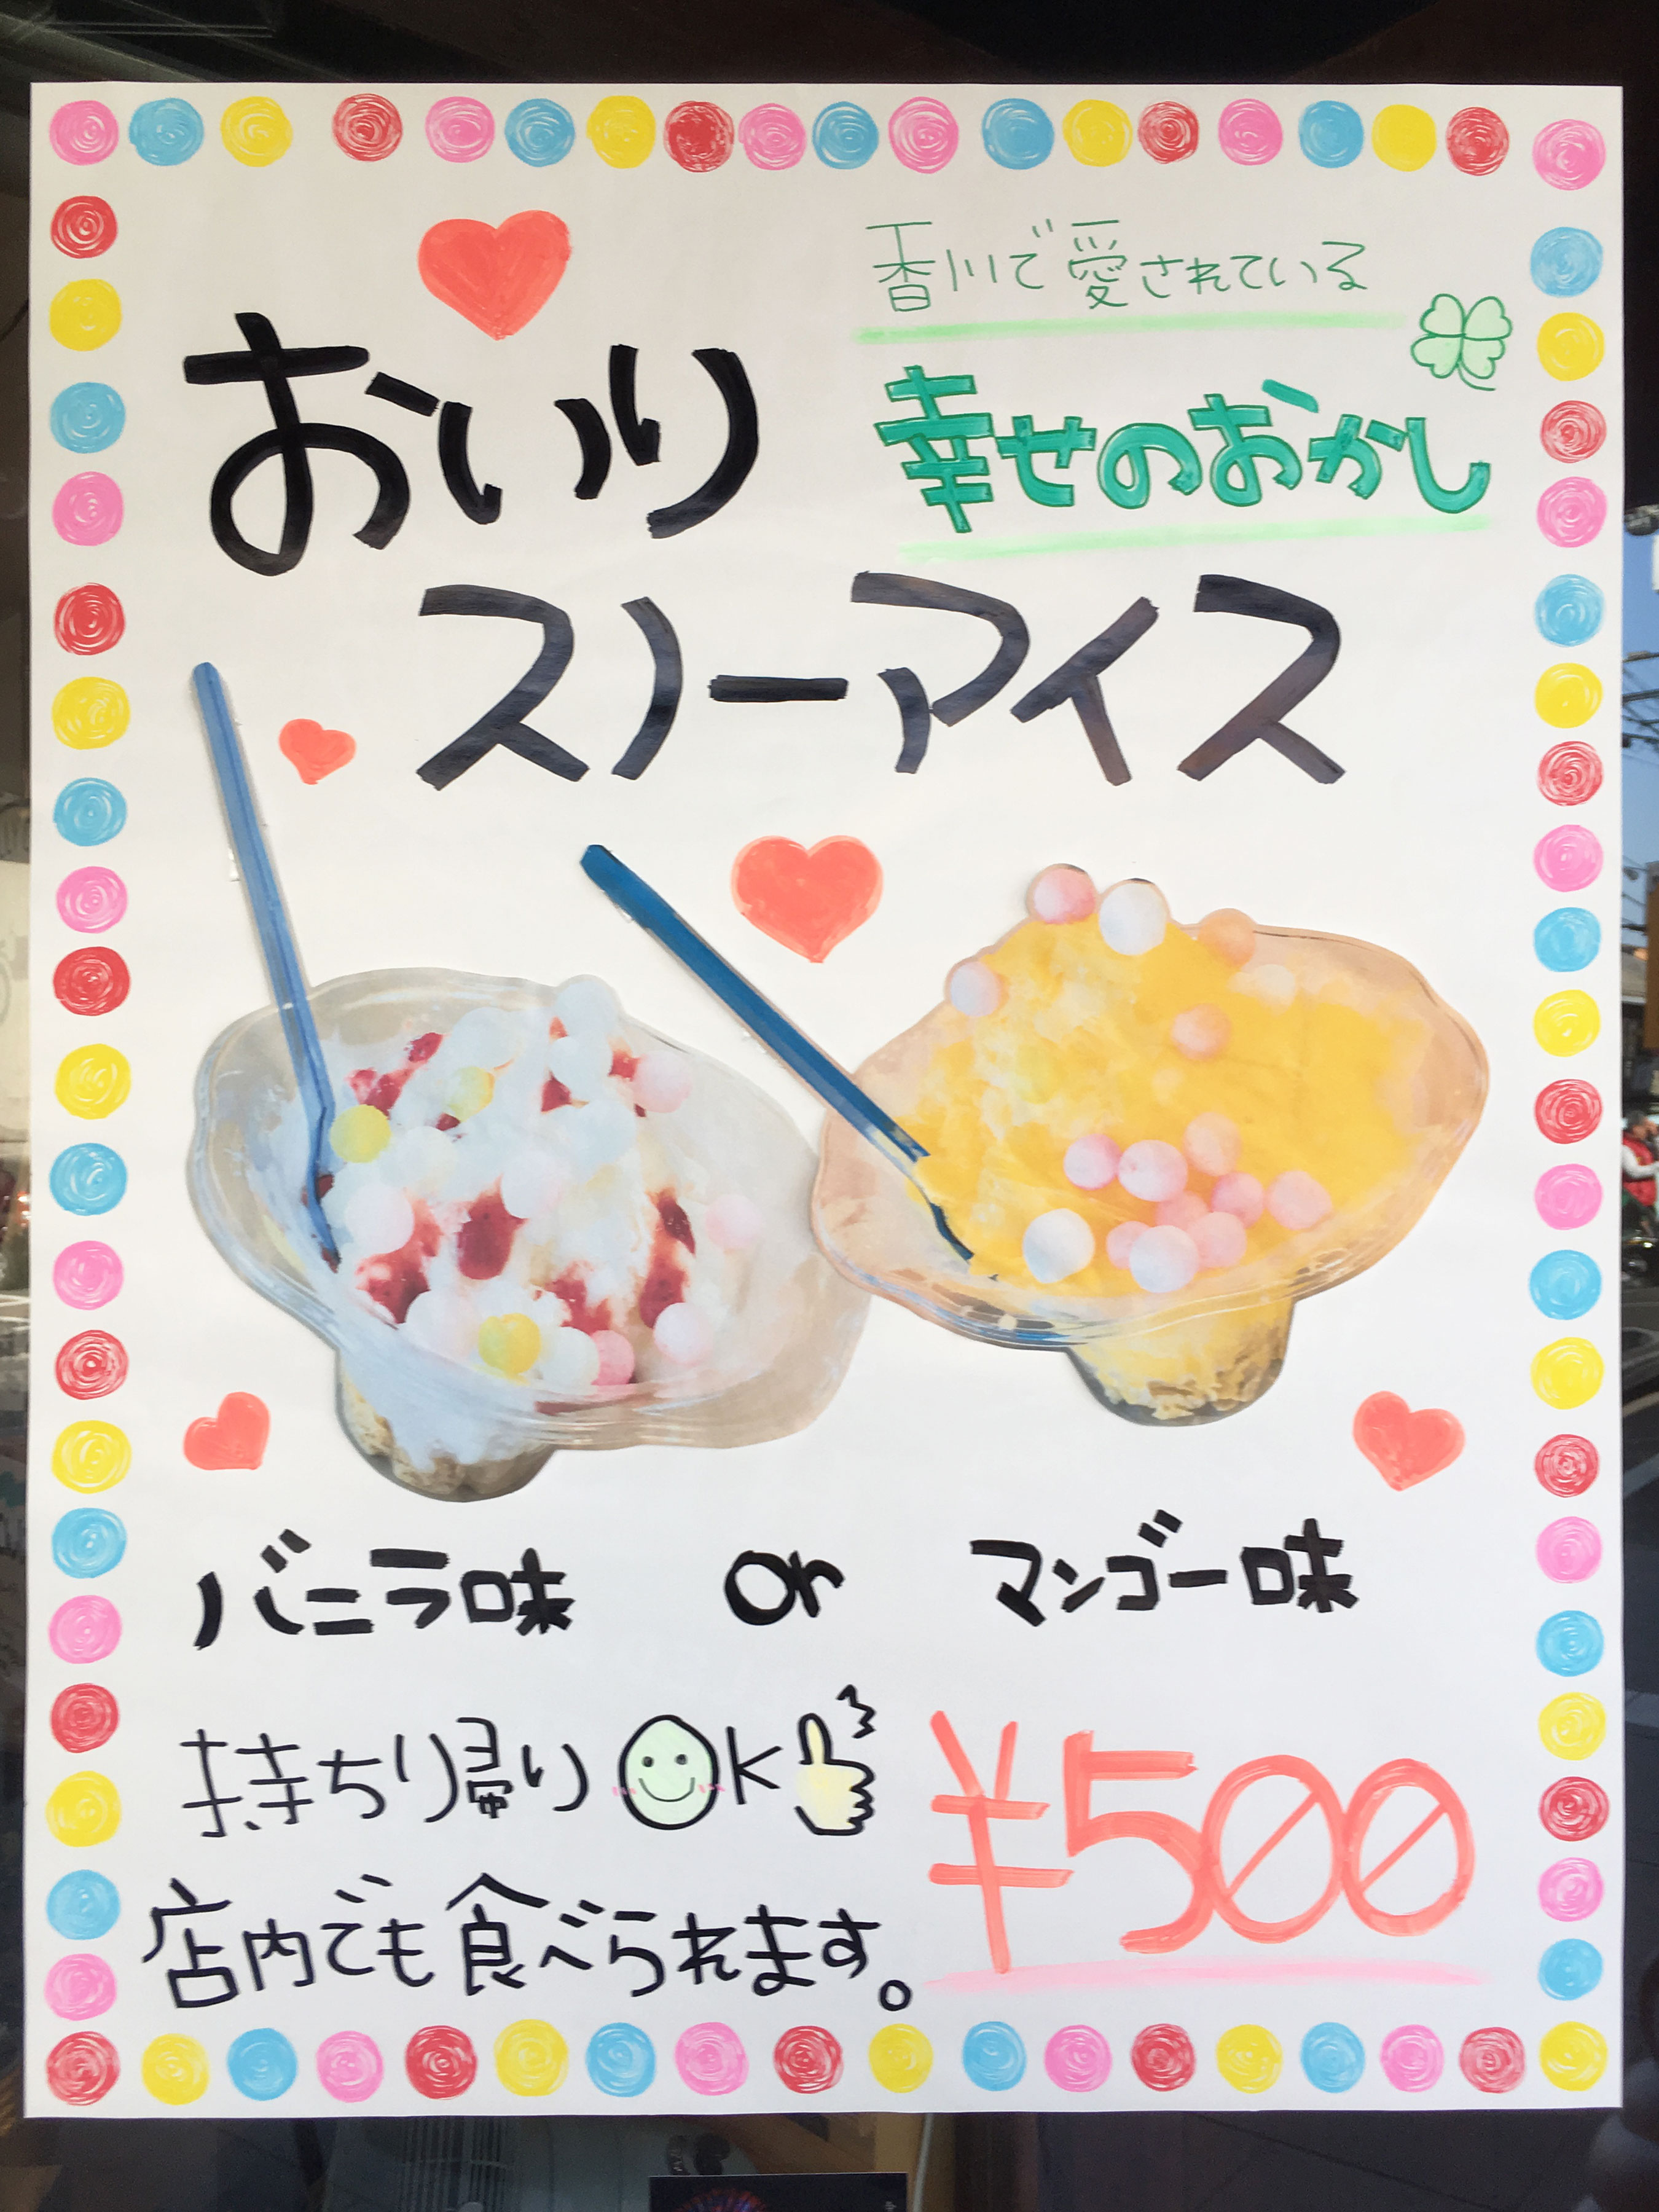 香川で愛されている
幸せのおかし
おいり
スノーアイス
バニラ味 or マンゴー味
持ち帰り OK
¥500
店内でも食べられます。